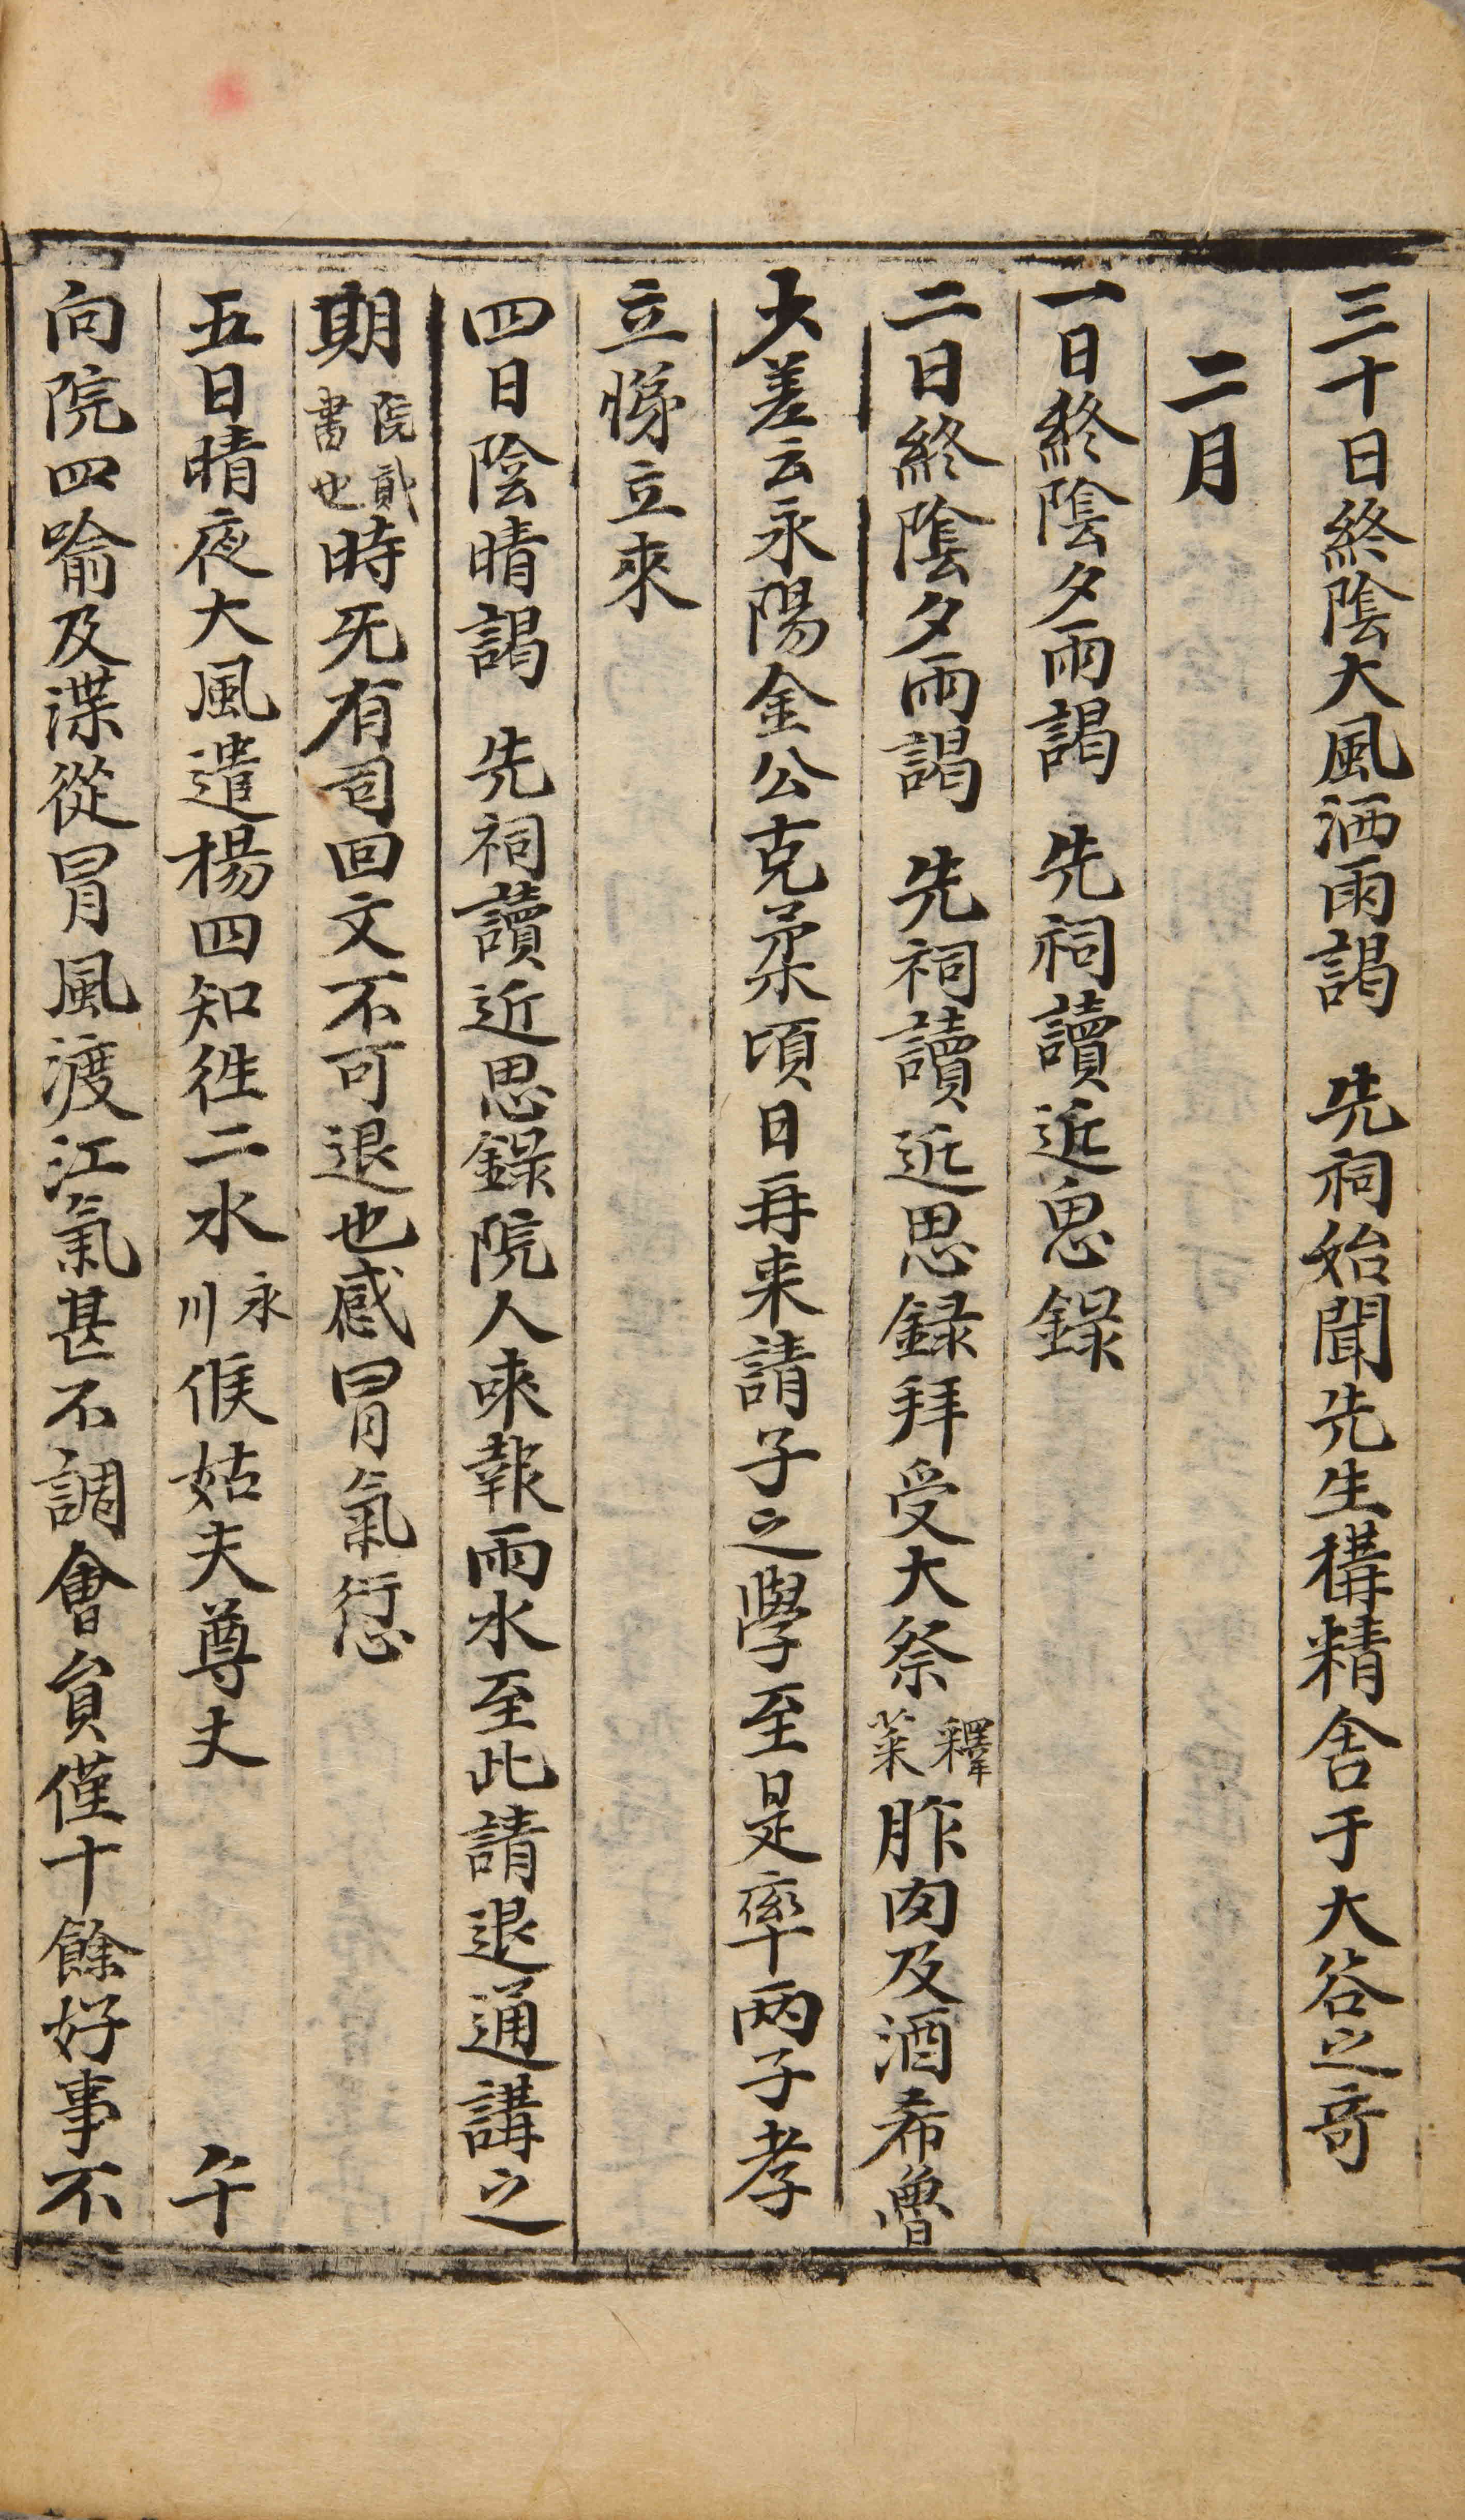 三十日終陰大風洒雨謁 先祠始聞先生搆精舍于大谷之奇
二月
一日終陰夕雨謁 先祠讀近思錄
二日終陰夕雨謁 先祠讀近思録拜受大祭釋菜胙肉及酒希魯
大差云永陽金公克柔頃日再来請子之學至是率两子孝
立悌立來
四日陰晴謁 先祠讀近思錄院人來報雨水至此請退通講之
期院貳書也時旡有司回文不可退也感冒氣愆
五日晴夜大風遣楊四知徃二水永川候姑夫尊丈 午
向院四喻及渫從冒風渡江氣甚不調會貟僅十餘好事不